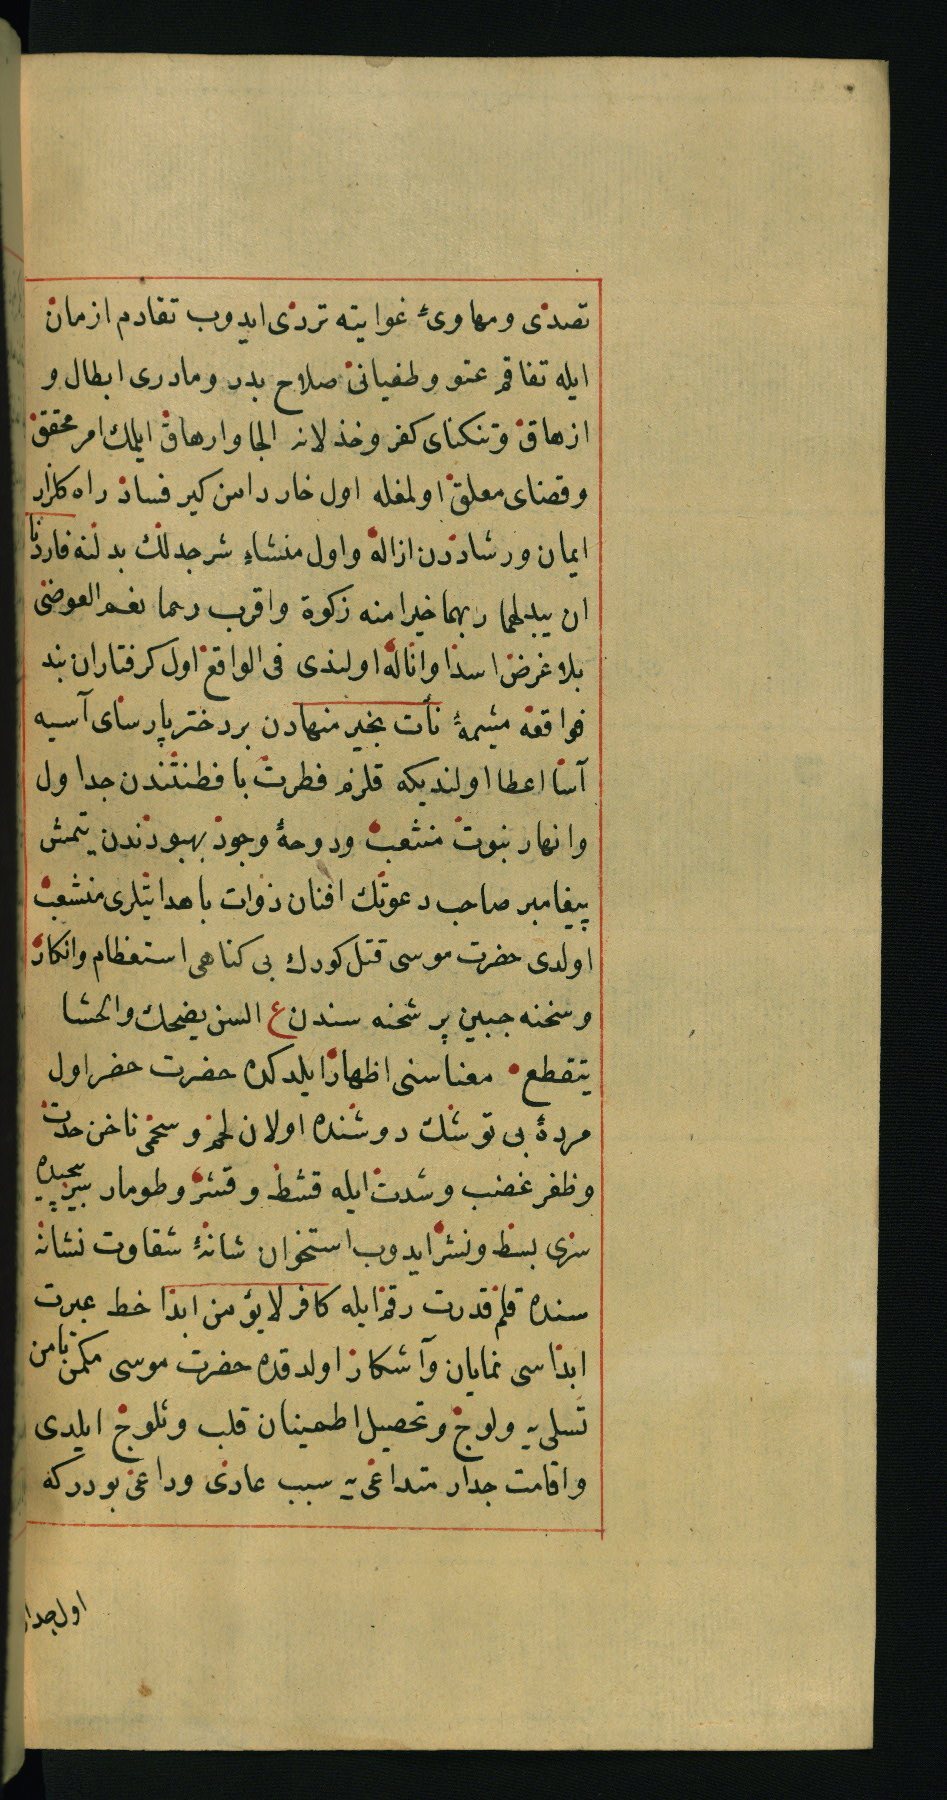 تصدی و مهاوئ غوایته تردی ایدوب تقادم ازمان
ایله تفاقم عتو و طغیانی صلاح پدر و مادری ابطال و
ازهاق و تنکنای کفر و خذلانه الجا و ارهاق ایلمك امر محقق
و قضای معلق اولمغله اول خار دامن کیر فساد راه کلزار
ایمان و رشاددن ازاله و اول منشاء شر جدلك بدلنه فاردنا
ان یبدلهما ربهما خیرا منه زکوة واقرب رحما نعم العوضی
بلا غرض اسدا و اناله اولندی فی الواقع اول کرفتاران بند
فواقعه مشیمهٔ نأت بخیر منهادن بر دختر پارسای آسیه
آسا اعطا اولندیکه قلزم فطرت با فطنتندن جداول
وانهار نبوت منشعب ودوحهٔ وجود بهبودندن یتمش
پیغامبر صاحب دعوتك افنان ذوات با هدایتلری منشعب
اولدی حضرت موسی قتل کودك بی کناهی استعظام وانکار
وسخنه جبین پر شحنه سندن ع السن یضحك والحشا
یتقطع معناسنی اظهار ایلدکده حضرت خضر اول
مردهٔ بی توشك دوشنده اولان لحم و سخمی ناخن حدت
وظفر غضب وشدت ایله قشط و قشر و طومار سر پیچیده
سزی بسط ونشر ایدوب استخوان شانهٔ شقاوت نشانه
سنده قلم قدرت رقم ایله کافر لا یؤمن ابدا خط عبرت
ابداسی نمایان وآشکار اولدقده حضرت موسی مکمن تامن
تسلی یه ولوج وتحصیل اطمینان قلب وثلوج ایلدی
واقامت جدار متداعی یه سبب عادی وداعی بودر که
اول جدار